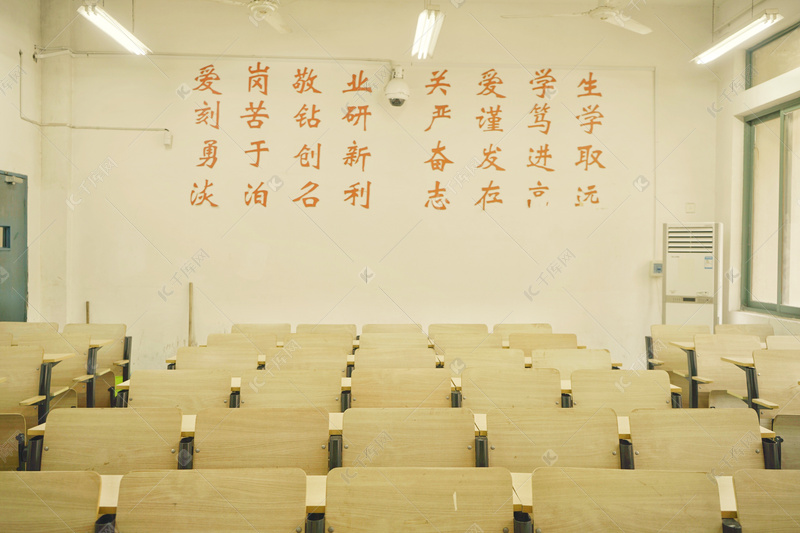 爱岗敬业
刻苦钻研
勇于创新
淡泊名利
关爱学生
严谨笃学
奋发进取
志在高远
千库网